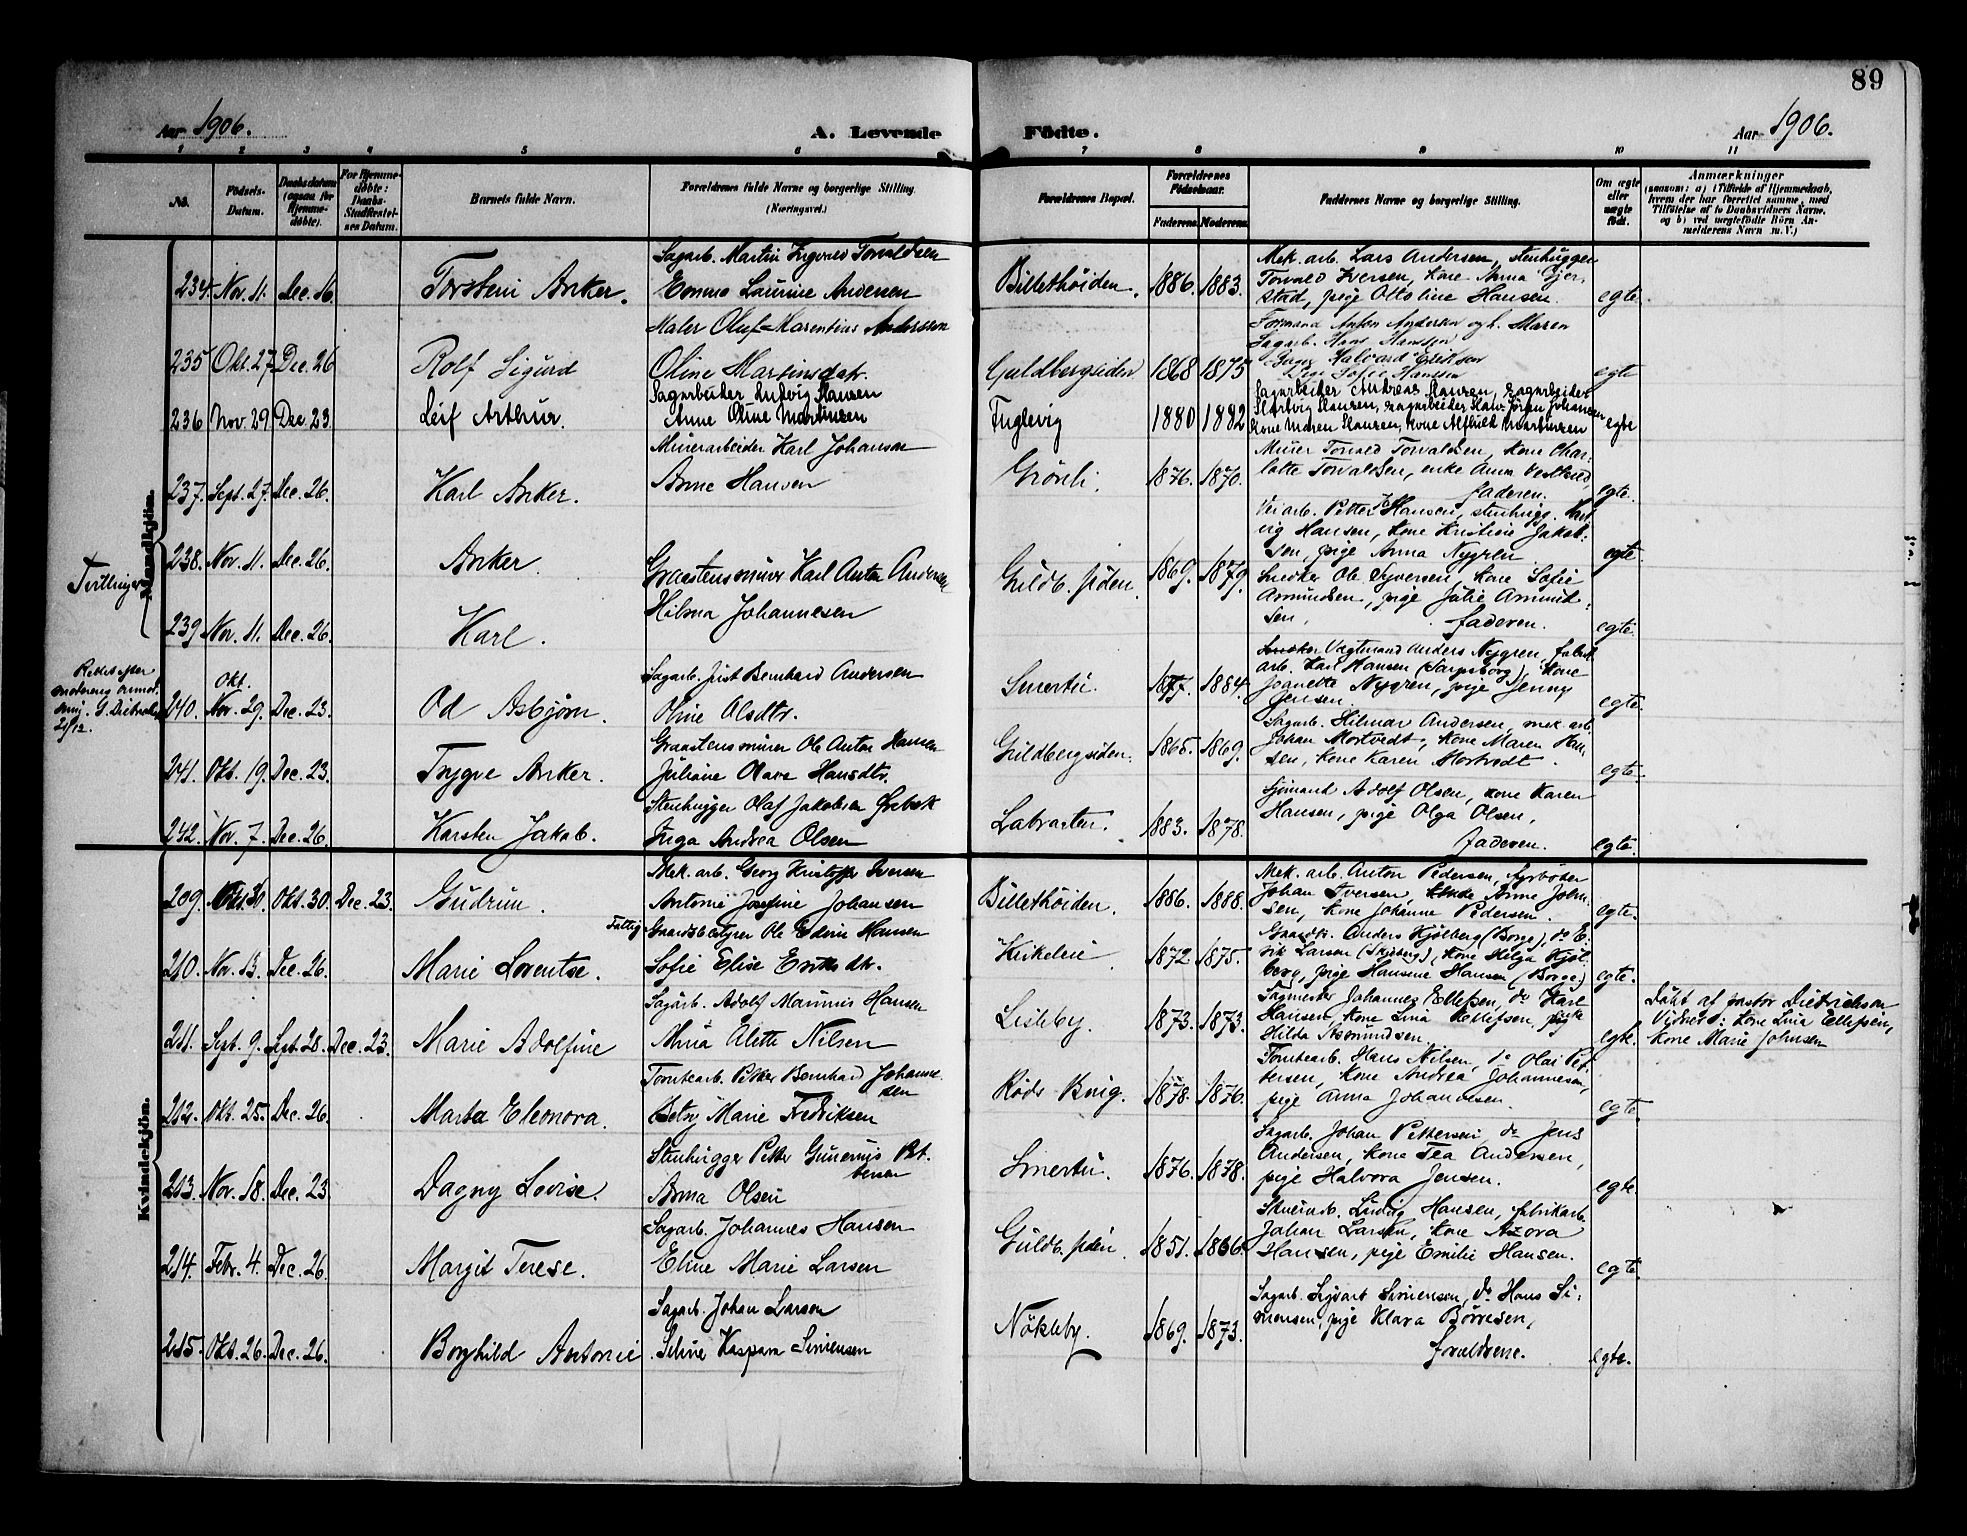 89
Aar 1906.
A. Levende
Födte.
Aar 1906.
1 2 3 4 5 6 7 8 9 10 11
No.
Födsels-
Datum.
Daabsdatum
(ogsaa for
Hjemme-
döbte).
For Hjemme-
döbte:
Daabs-
Stadfæstel-
ses Datum.
Barnets fulde Navn.
Forældrenes fulde Navne og borgerlige Stilling.
(Næringsvei.)
Forældrenes Bopæl.
Forældrenes
Födselsaar.
Faderens. Moderens.
Faddernes Navne og borgerlige Stilling.
Om ægte
eller
uægte
födt.
Anmærkninger
(saasom: a) i Tilfælde af Hjemmedaab,
hvem der har forrettet samme, med
Tilföielse af to Daabsvidners Navne,
og b) ved uægtefödte Börn An-
melderens Navn m. V.)
Mandkjön.
234. Nov. 11. Dec. 16.
Torstein Anker.
Sagarb. Martin Ingvald Torvaldsen
Emma Laurine Andersen
Billethöiden. 1886. 1883.
Mek. arb. Lars Andersen, stenhugger
Torvald Iversen, kone Anna Gjer-
stad, pige Ottoline Hansen.
egte.
235 Okt. 27. Dec. 26
Rolf Sigurd
Maler Oluf Marentius Anderssen
Oline Martinsdatr.
Guldbergsiden 1868 1875
Formand Anton Andersen og h. Maren
Sagarb. Hans Hanssen
Halvard Eriksen
Pige Sofie Hanssen
egte
236 Nov. 29. Dec. 23.
Leif Arthur.
Sagarbeider Ludvig Hansen
Anne Oline Martinsen
Fuglevig 1880 1882
Sagarbeider Andreas Hansen, sagarbeider
Hartvig Hansen, sagarbeider Hans Jörgen Johansen
Kone Maren Hansen, kone Alfhild Martinsen
egte
237. Sept. 27. Dec. 26.
Karl Anker.
Minerarbeider Karl Johansen
Anne Hansen
Grönli. 1876. 1870.
Murer Torvald Torvaldsen, kone Char-
lotte Torvaldsen, enke Anna Vestbred,
faderen.
egte.
Tvillinger
238. Nov. 11. Dec. 26.
Anker.
Graastensminer Karl Anton Andersen
Hilma Johannesen
Guldb. siden. 1869. 1879.
Veiarb. Petter Hansen, stenhugg. Hart-
vig Hansen, kone Kristine Jakob-
sen, pige Anna Nygren
egte.
239 Nov. 11. Dec. 26.
Karl.
Smeder Ole Syversen, kone Sofie
Asmundsen, pige Julie Asmund-
sen, faderen.
egte.
Rettet efter
240. Okt.
Nov. 29. Dec. 23.
Od Asbjörn.
Sagarb. Just Bernhard Andersen
Oline Olsdtr.
Smertu. 1877. 1884.
Vagtmand Anders Nygren, fabrik-
arb. Karl Hansen (Sarpsborg), kone
Jeanette Nygren, pige Jenny
Jensen.
egte.
241. Okt. 19. Dec. 23.
Trygve Anker.
Graastensminer Ole Anton Hansen
Juliane Olava Hansdtr.
Guldbergsiden. 1865. 1869.
Sagarb. Hilmar Andersen, mek. arb.
Johan Mortvedt, kone Maren Han-
sen, kone Karen Mortvedt.
egte.
242. Nov. 7. Dec. 26.
Karsten Jakob.
Stenhugger Olaf Jakobsen Grebsk
Inga Andrea Olsen
Labraaten. 1883. 1878.
Sjömand Adolf Olsen, kone Karen
Hansen, pige Olga Olsen,
faderen.
egte.
Kvindekjön.
209. Okt. 30. Dec. 23.
Gudrun.
Mek. arb. Georg Kristoffer Iversen
Antonie Josefine Johansen
Billethöiden. 1886. 1888.
Mek. arb. Anton Pedersen, fyrböder
Johan Iversen, Anne John-
sen, kone Johanne Pedersen.
egte.
210. Nov. 13. Dec. 26.
Marie Lorentse.
Fattig-
Gaardsbestyrer Ole Edvin Hansen
Sofie Elise Eriksdtr.
Kirkelie 1872 1875.
Gaardbr. Anders Kjölberg (Borge), do E-
rik Larsen (Skjeberg), kone Helga Kjöl-
berg, pige Hansine Hansen (Borge)
egte.
211. Sept. 9. Sept. 28. Dec. 23.
Marie Adolfine
Sagarb. Adolf Marinus Hansen
Anna Alette Nilsen
Lisleby. 1873. 1873.
Sagmester Johannes Ellefsen, do Karl
Hansen, kone Lina Ellefsen, pige
Hilda Asmundsen,
egte.
Döbt af pastor Dietrichson
Vidner: kone Lina Ellefsen,
kone Marie Johnsen
212. Okt. 25. Dec. 26.
Marta Eleonora.
Tomtearb. Petter Bernhard Johanne-
sen
Betsy Marie Fredriksen
Röds Brug. 1878. 1876.
Tomtearb. Hans Nilsen, do Olai Pet-
tersen, kone Andrea Johannesen,
pige Anna Johannesen.
egte.
213. Nov. 18. Dec. 23.
Dagny Lovise.
Stenhugger Petter Gunerius Pet-
tersen
Anna Olsen
Smertu. 1876. 1878.
Sagarb. Johan Pettersen, do Jens
Andersen, kone Tea Andersen,
pige Halvora Jensen.
egte.
214. Febr. 4. Dec. 26.
Margit Terese.
Sagarb. Johannes Hansen
Eline Marie Larsen
Guldb. siden. 1851. 1866.
Ludvig Hansen, fabrikarb.
Johan Larsen, kone Azora
Hansen, pige Emilie Hansen.
egte.
215. Okt. 26. Dec. 26.
Borghild Antonie
Sagarb. Johan Larsen
Seline Kaspara Simensen
Nökleby. 1869. 1873.
Sagarb. Sigvart Simensen, do Hans Si-
mensen, pige Klara Börresen,
forældrene.
egte.